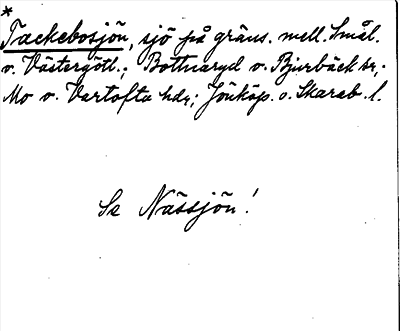 *
Tackebosjön, sjö på gräns. mell. Smål.
o. Västergötl.; Bottnaryd o. Bjurbäck sr,.
Mo o. Vartofta hdr; Jönköp. o. Skarab. l.
Se Nässjön!